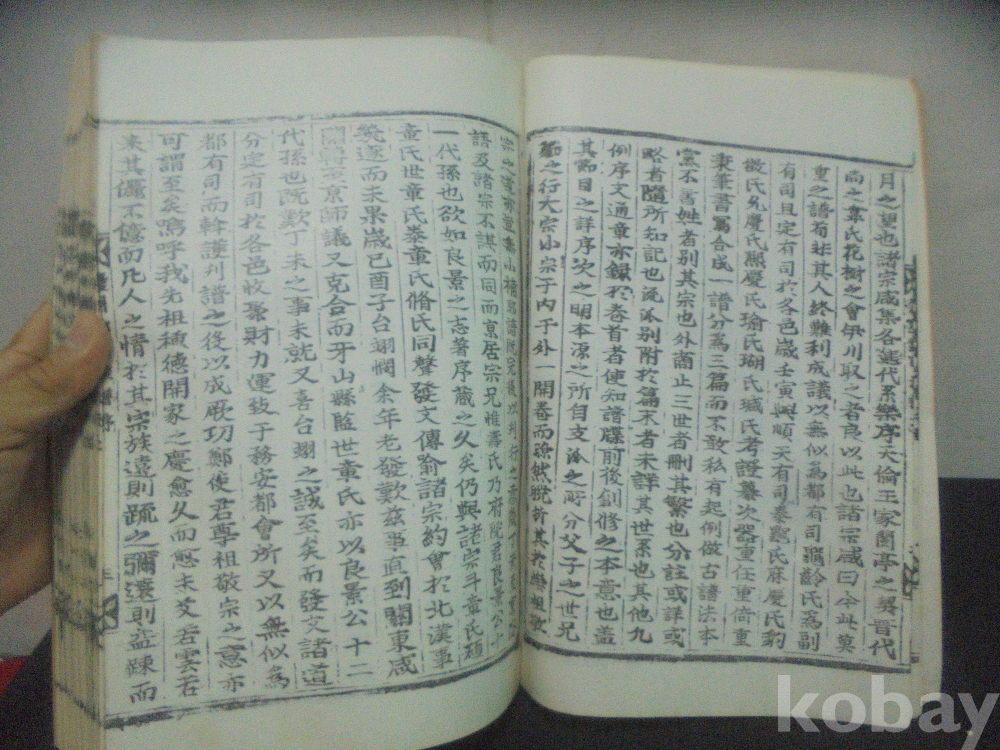 月之望也諸宗咸集各遞代系幾序天倫王家蘭亭之契晉代
尚之韋氏花樹之會伊川取之者良以此也諸宗咸曰今此莫
重之譜有非其人終難利成議以無似為都有司龜齡氏為副
有司且定有司於各邑歲壬寅與順天有司泰 氏庥慶氏豹
徵氏允慶氏 慶氏瑜氏瑚氏珹氏考證纂次器重任重倚重
秉筆書寫合成一譜分為三篇而不敢私有起例倣古譜法本
黨不書姓者別其宗也外裔止三世者刪其繁也分註或詳或
略者隨所知記也派別附於篇末者未詳其世系也其他凡
例序文通章亦錄於卷首者使知譜牒前後創修之本意也盖
其節目之詳序次之明本源之所自支派之所分父子之世兄
之行大宗小宗于內于外一開卷而
語及諸宗不謀而同而京居宗兄惟壽氏乃府院君良景公十
一代孫也欲如良景之志著序藏之久矣仍與諸宗斗章氏碩
童氏世章氏泰章氏脩氏同聲發文傳諭諸宗約會於北漢事
逐而未果歲己酉子台翊憫余年老發歎茲事直到關東咸
京師議又克合而牙山縣監世章氏亦以良景公十二
代孫也既歎丁未之事未就又喜台翊之誠至矣而發文諸道
分定有司於各邑收聚財力運致于務安都會所又以無似為
都有司而幹護刋譜之役以成厥功鄭使君尊祖敬宗之意亦
可謂至矣嗚呼我先祖種德開家之慶愈久而愈未艾若雲若
来其儷不億而凡人之情於其宗族遠則疏之彌遠則益疎而
kobay